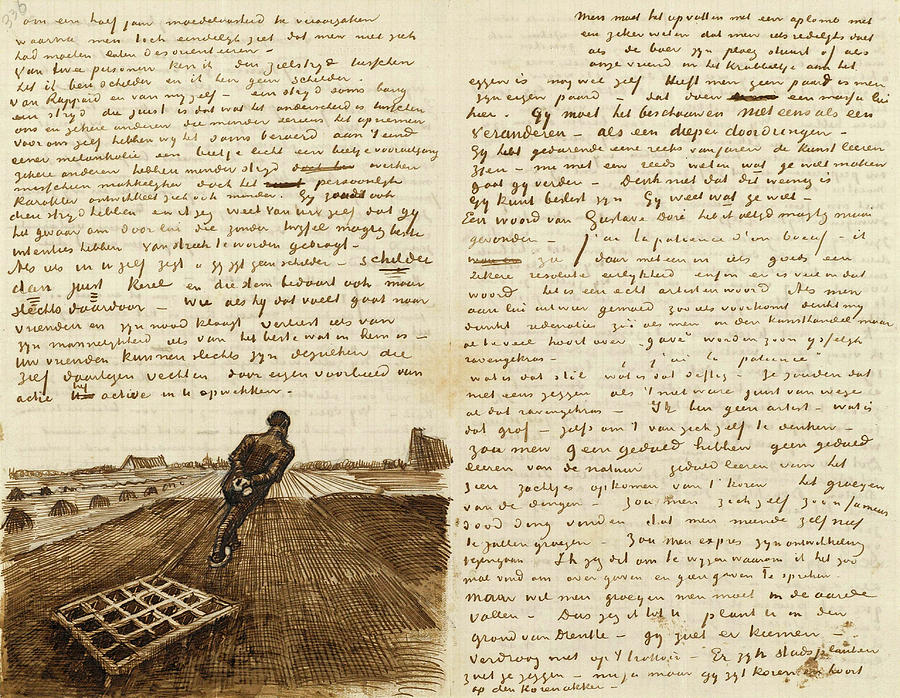 336
om een half jaar moedeloosheid te veroorzaken
waarna men toch eindelijk ziet dat men niet zich
had moeten laten desorienteeren –
Van twee personen ken ik den zielestryd tusschen
het ik ben schilder en ik ben geen schilder.
Van Rappard en van my zelf – een stryd soms bang
een stryd die juist is dat wat het onderscheid is tusschen
ons en zekere anderen die minder serieus het opnemen
voor ons zelf hebben wy het soms beroerd aan 't eind
eener melankolie een beetje licht een beetje vooruitgang
zekere anderen hebben minder stryd werken
misschien makkelyker doch het persoonlyk
karakter ontwikkelt zich ook minder. Gy zoudt ook
dien stryd hebben en ik zeg weet van uw zelf dat gy
het gevaar om door lui die zonder twyfel magnifique beste
intenties hebben van streek te worden gebragt –
Als iets in U zelf zegt „gy zyt geen schilder – schilder
dan juist kerel en die stem bedaart ook maar
slechts daardoor – wie als hy dat voelt gaat naar
vrienden en zyn nood klaagt verliest iets van
zyn mannelykheid iets van het beste wat in hem is –
Uw vrienden kunnen slechts zyn dezulken die
zelf daartegen vechten door eigen voorbeeld van
actie de active in U opwekken –
Men moet het opvatten met een aplomb met
een zeker weten dat men iets redelyks doet
als de boer zyn ploeg stuurt of als
onze vriend in het krabbeltje die aan het
eggen is nog wel zelf Heeft men geen paard is men
zyn eigen paard – dat doen een massa lui
hier. Gy moet het beschouwen niet eens als een
veranderen – als een dieper doordringen –
Gy hebt gedurende eene reeks van jaren de kunst leeren
zien – nu met een reeds weten wat ge wilt maken
gaat gy verder – Denk niet dat dit weinig is
Gy kunt beslist zyn Gy weet wat ge wilt –
Een woord van Gustave Doré heb ik altyd magtig mooi
gevonden – j'ai la patience d'un boeuf – ik
zie daar meteen in iets goeds een
zekere resolute eerlykheid enfin er is veel in dat
woord het is een echt artistenwoord Als men
aan lui uit wier gemoed zoo iets voorkomt denkt my
dunkt redenaties zooals men in den kunsthandel maar
al te veel hoort over „gave" worden zoo'n yselyk
ravengekras – „j'ai la patience"
wat is dat stil wat is dat deftig – Ze zouden dat
niet eens zeggen als 't niet ware juist van wege
al dat ravengekras – Ik ben geen artist – wat is
dat grof – zelfs om 't van zich zelf te denken –
zou men geen geduld hebben geen geduld
leeren van de natuur geduld leeren van het
zien zachtjes opkomen van 't koren het groeyen
van de dingen – zou men zich zelf zoo'n fameus
dood ding vinden dat men meende zelf niet
te zullen groeyen – Zou men expres zyn ontwikkeling
tegengaan Ik zeg dit om te wyzen waarom ik het zoo
mal vind om over gaven en geen gaven te spreken.
maar wil men groeyen men moet in de aarde
vallen – Dus zeg ik tot U plant U in den
grond van Drenthe – gy zult er kiemen –
verdroog niet op 't trottoir – Er zyn stadsplanten
zult ge zeggen – nu ja maar gy zyt koren en hoort
op den korenakker –